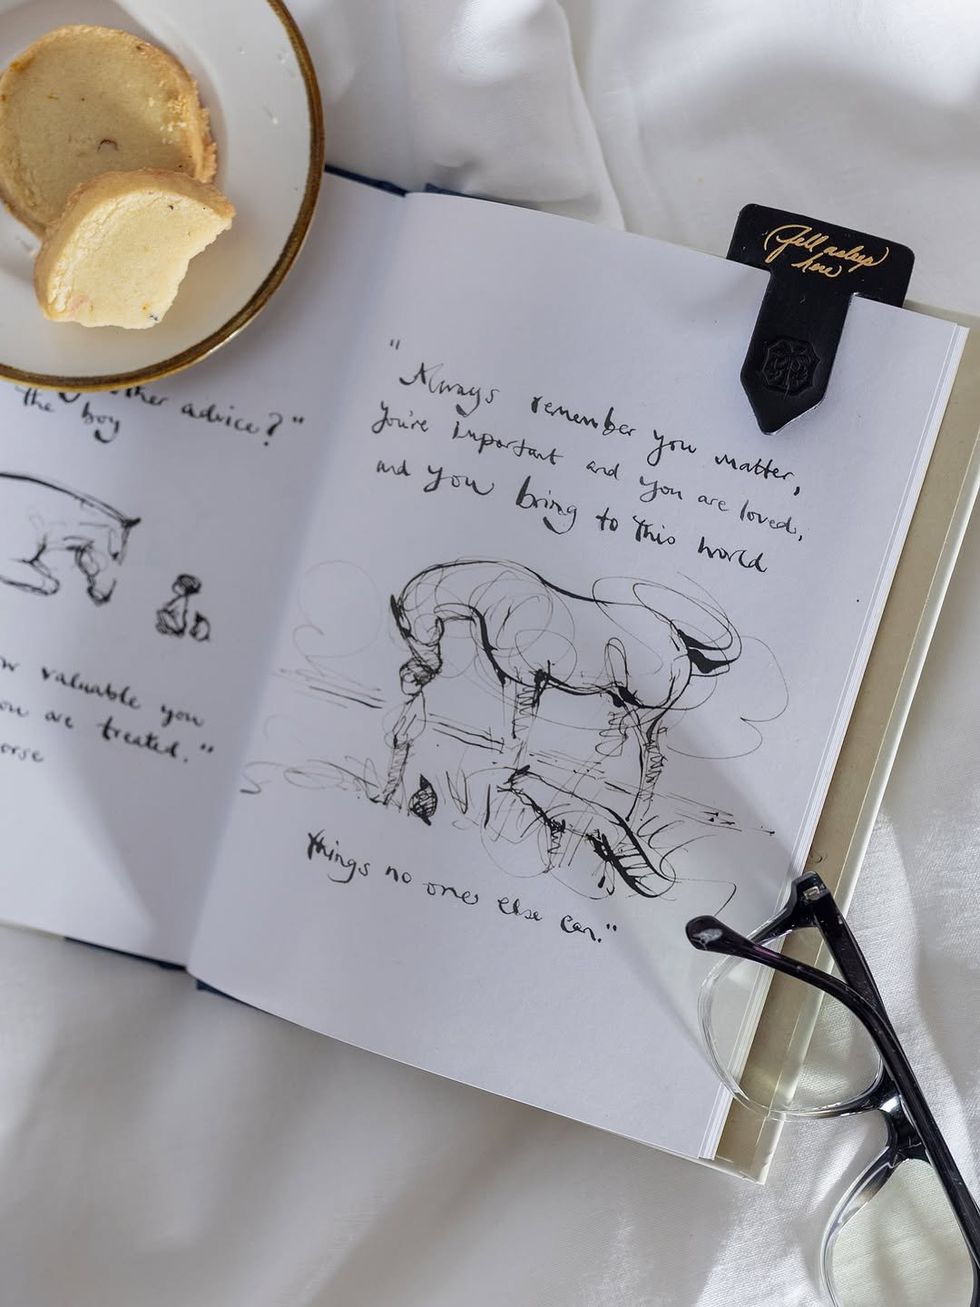 other advice?"
the boy
valuable you
you are treated."
"Always remember you matter,
you're important and you are loved,
and you bring to this world
things no one else can."
Fell asleep
here